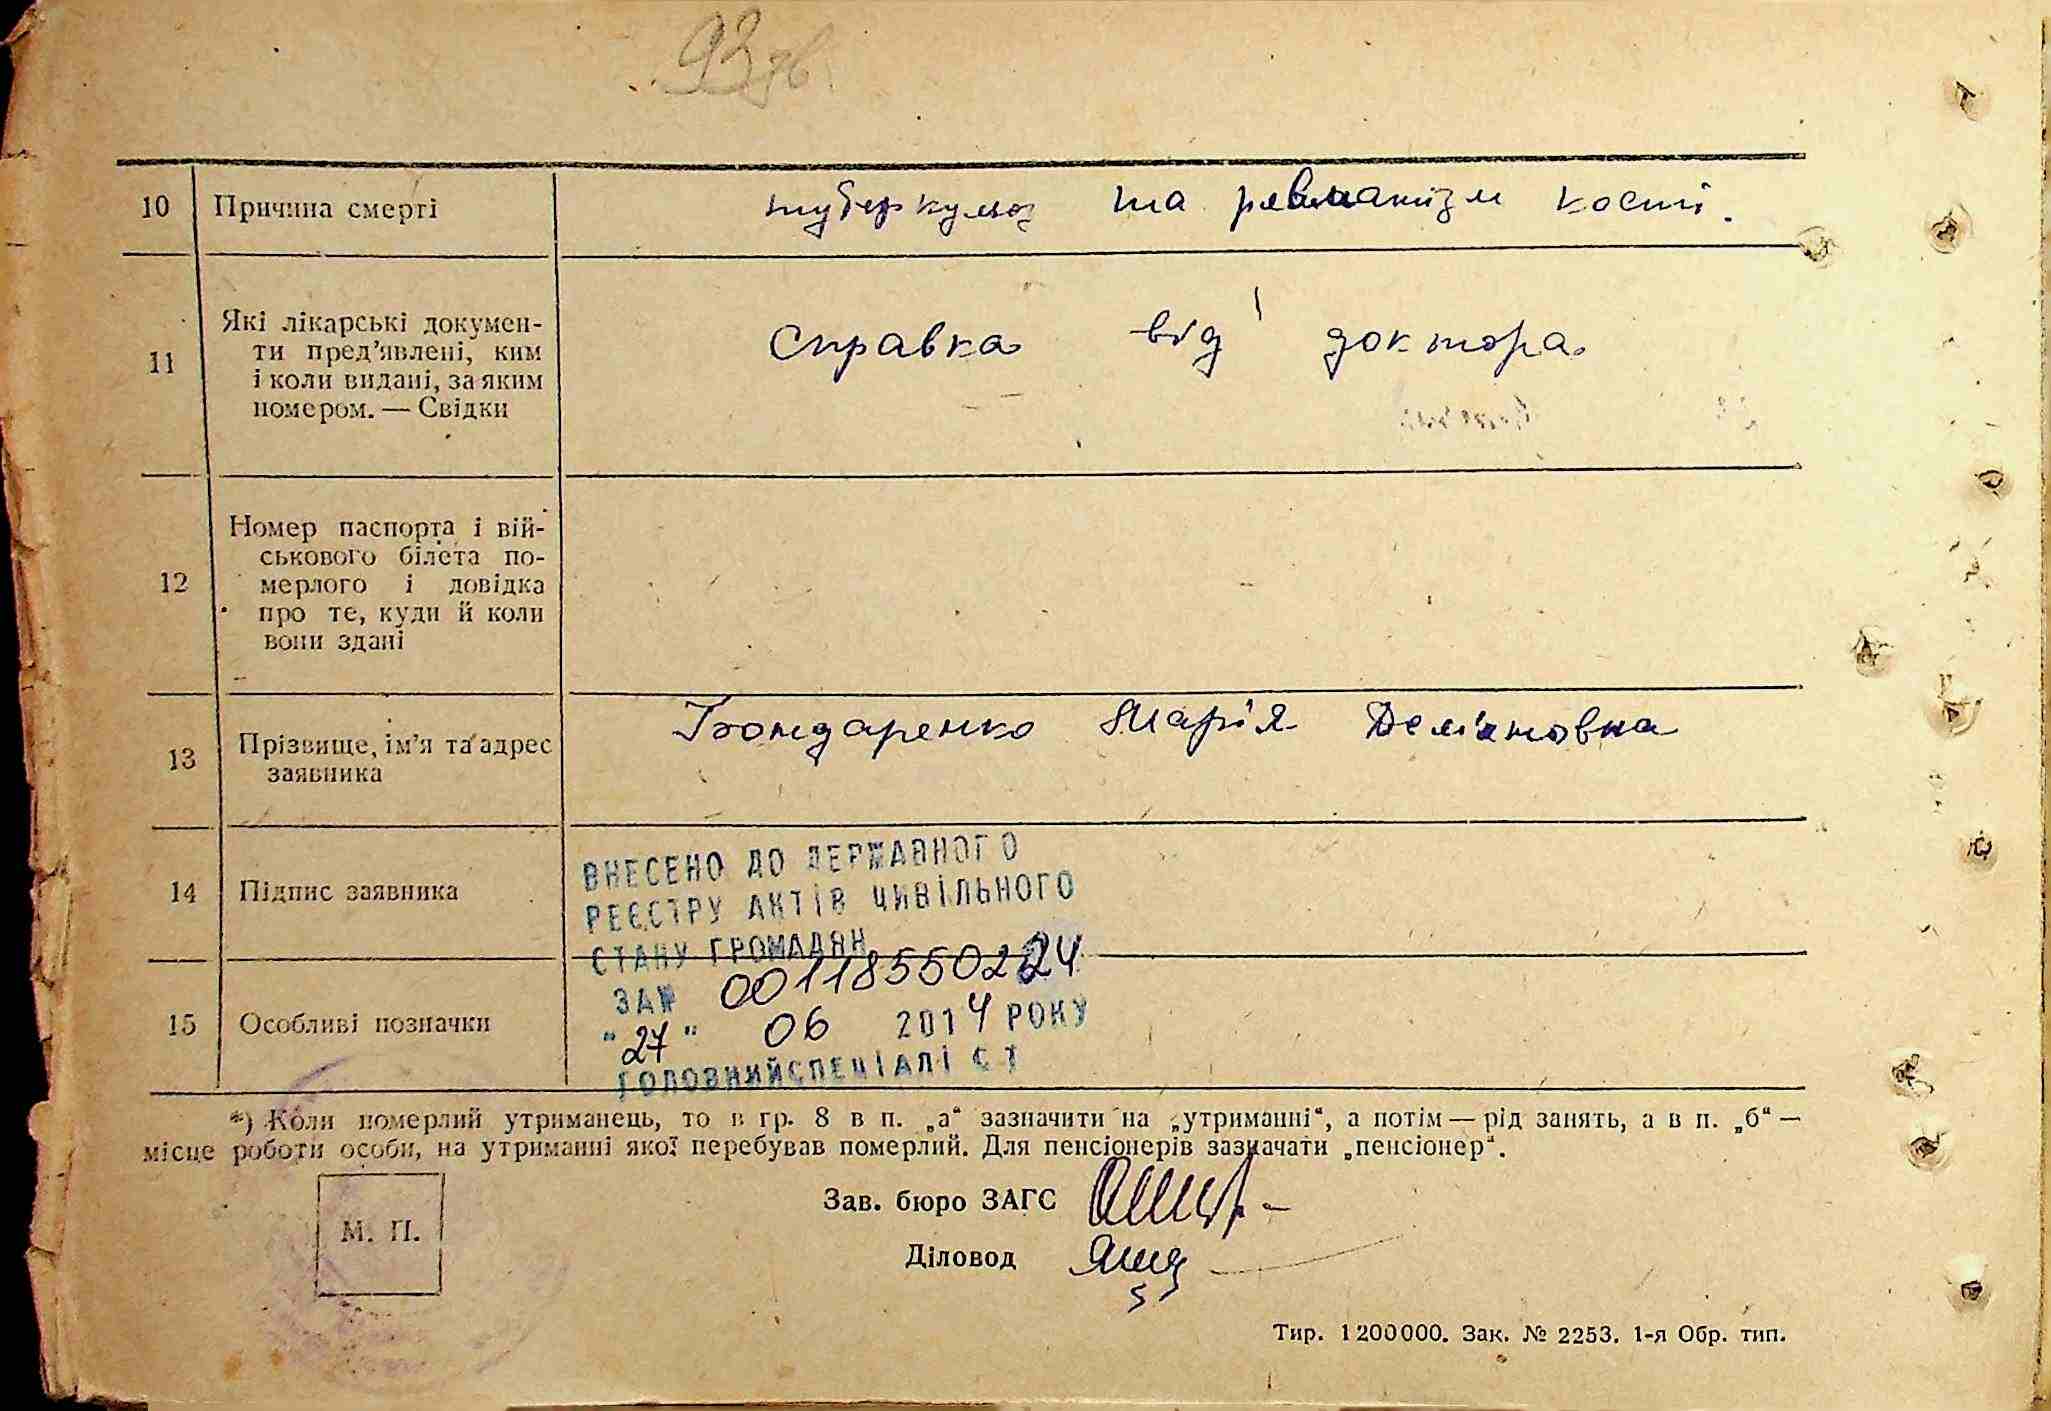 93 зв.
10 Причина смерті туберкульоз та ревматізм кості.
11 Які лікарські докумен-
ти пред’явлені, ким
і коли видані, за яким
номером. — Свідки
справка від доктора
12 Номер паспорта і вій-
ськового білета по-
мерлого і довідка
про те, куди й коли
вони здані
13 Прізвище, ім’я та адрес
заявника
Бондаренко Марія Дем'яновна
14 Підпис заявника
ВНЕСЕНО ДО ДЕРЖАВНОГО
РЕЄСТРУ АКТІВ ЦИВІЛЬНОГО
СТАНУ ГРОМАДЯН
ЗА№ 00118550224
15 Особливі позначки
"27" 06 2014 РОКУ
ГОЛОВНИЙ СПЕЦІАЛІСТ
*) Коли померлий утриманець, то в гр. 8 в п. „а“ зазначити на „утриманні“, а потім — рід занять, а в п. „б“ —
місце роботи особи, на утриманні якої перебував померлий. Для пенсіонерів зазначати „пенсіонер“.
Зав. бюро ЗАГС
М. П.
Діловод
Тир. 1200000. Зак. № 2253. 1-я Обр. тип.